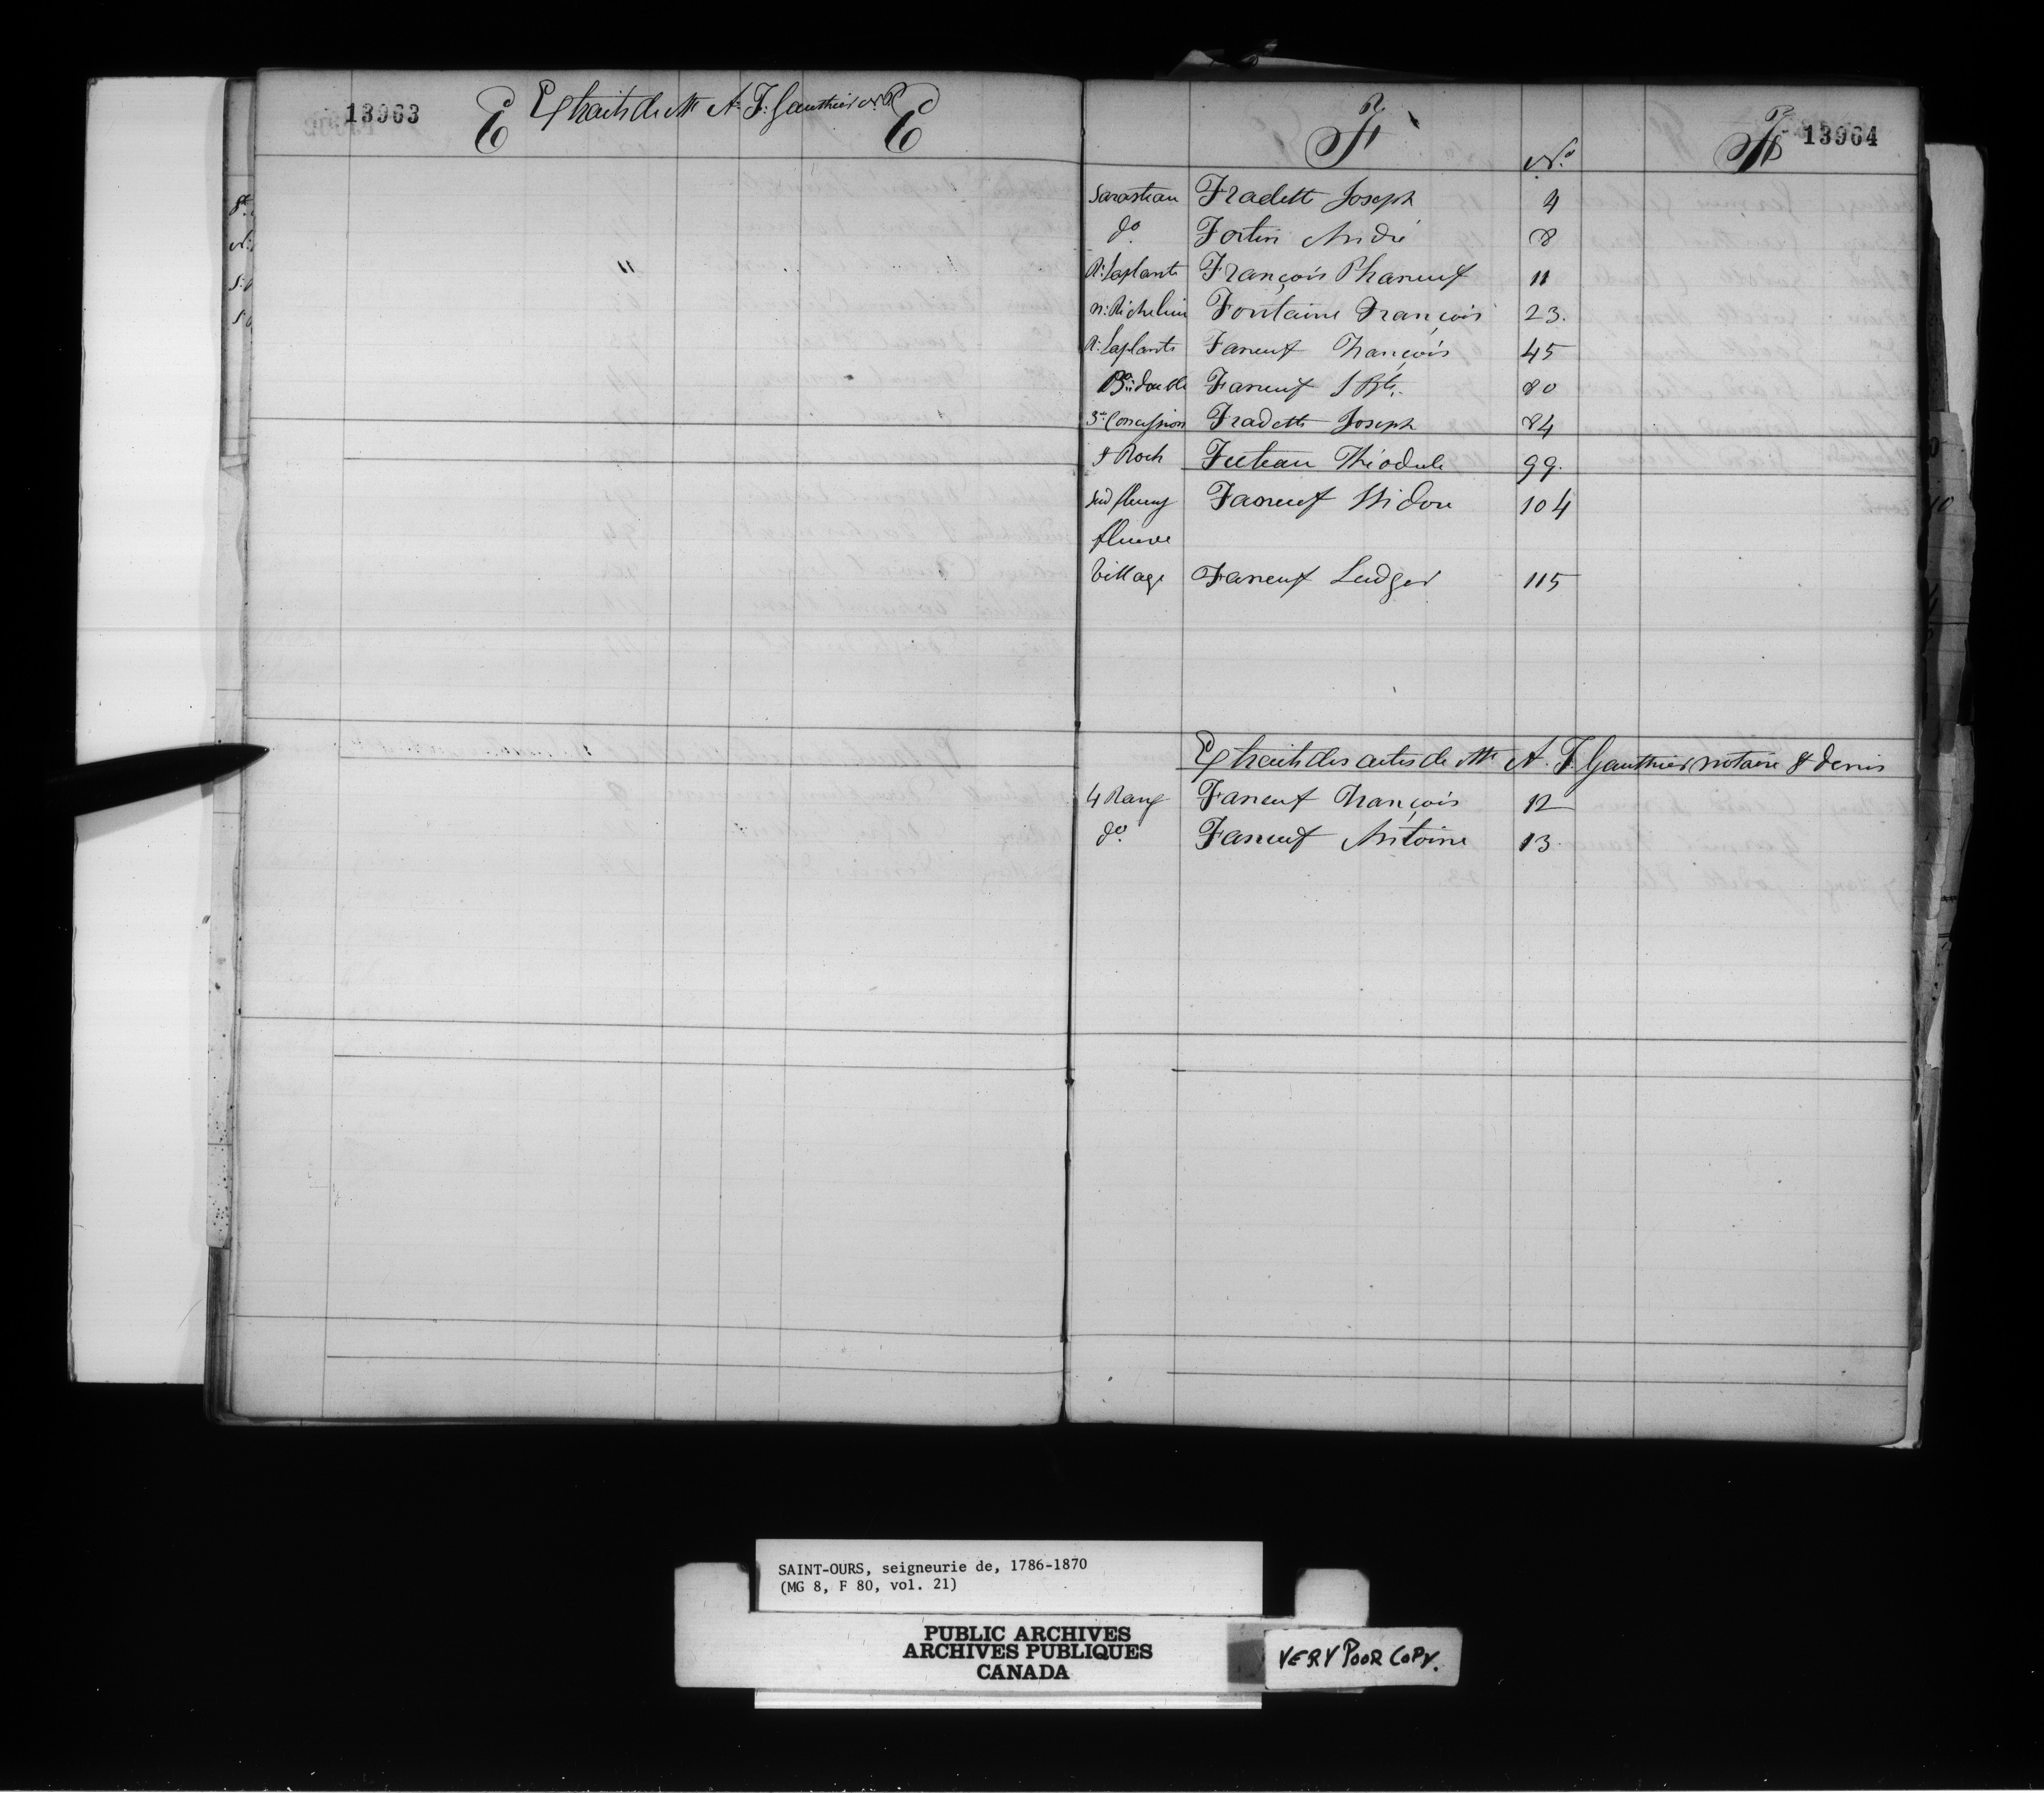 13963 E Extraits de Mtre A. F. Gauthier N.P. E
"
F No F 13964
Sarasteau Fradette Joseph 4
do Fortin André 8
R. Laplante François Phaneuf 11
n. Richelieu Fontaine François 23.
R. Laplante Faneuf François 45
Bn double Faneuf J Bte. 80
3e Concession Fradette Joseph 84
St Roch Feuteau Théodule 99.
Sud fleury Faneuf Isidore 104
fleuve
Village Faneuf Ludger 115
Extraits des actes de Mtre A. F. Gauthier notaire St Denis
4 Rang Faneuf François 12
do Faneuf Antoine 13
SAINT-OURS, seigneurie de, 1786-1870
(MG 8, F 80, vol. 21)
PUBLIC ARCHIVES
ARCHIVES PUBLIQUES
CANADA
VERY POOR COPY.